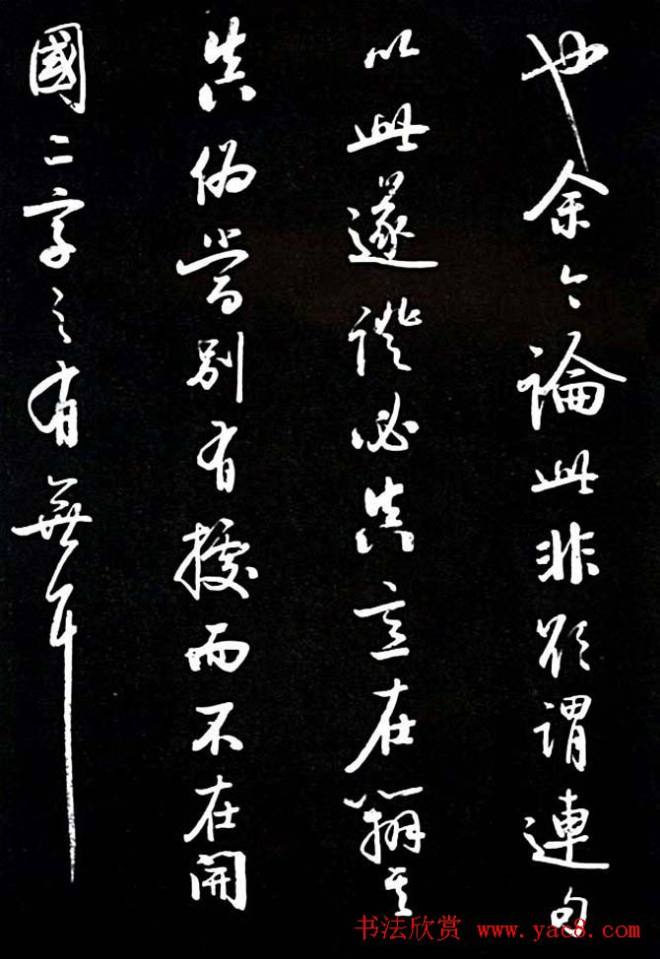 也余之論此非欲謂連句
以此遂證必真意在辨其
真偽當別有據而不在開
國二字之有無耳
书法欣赏 www.yac8.com